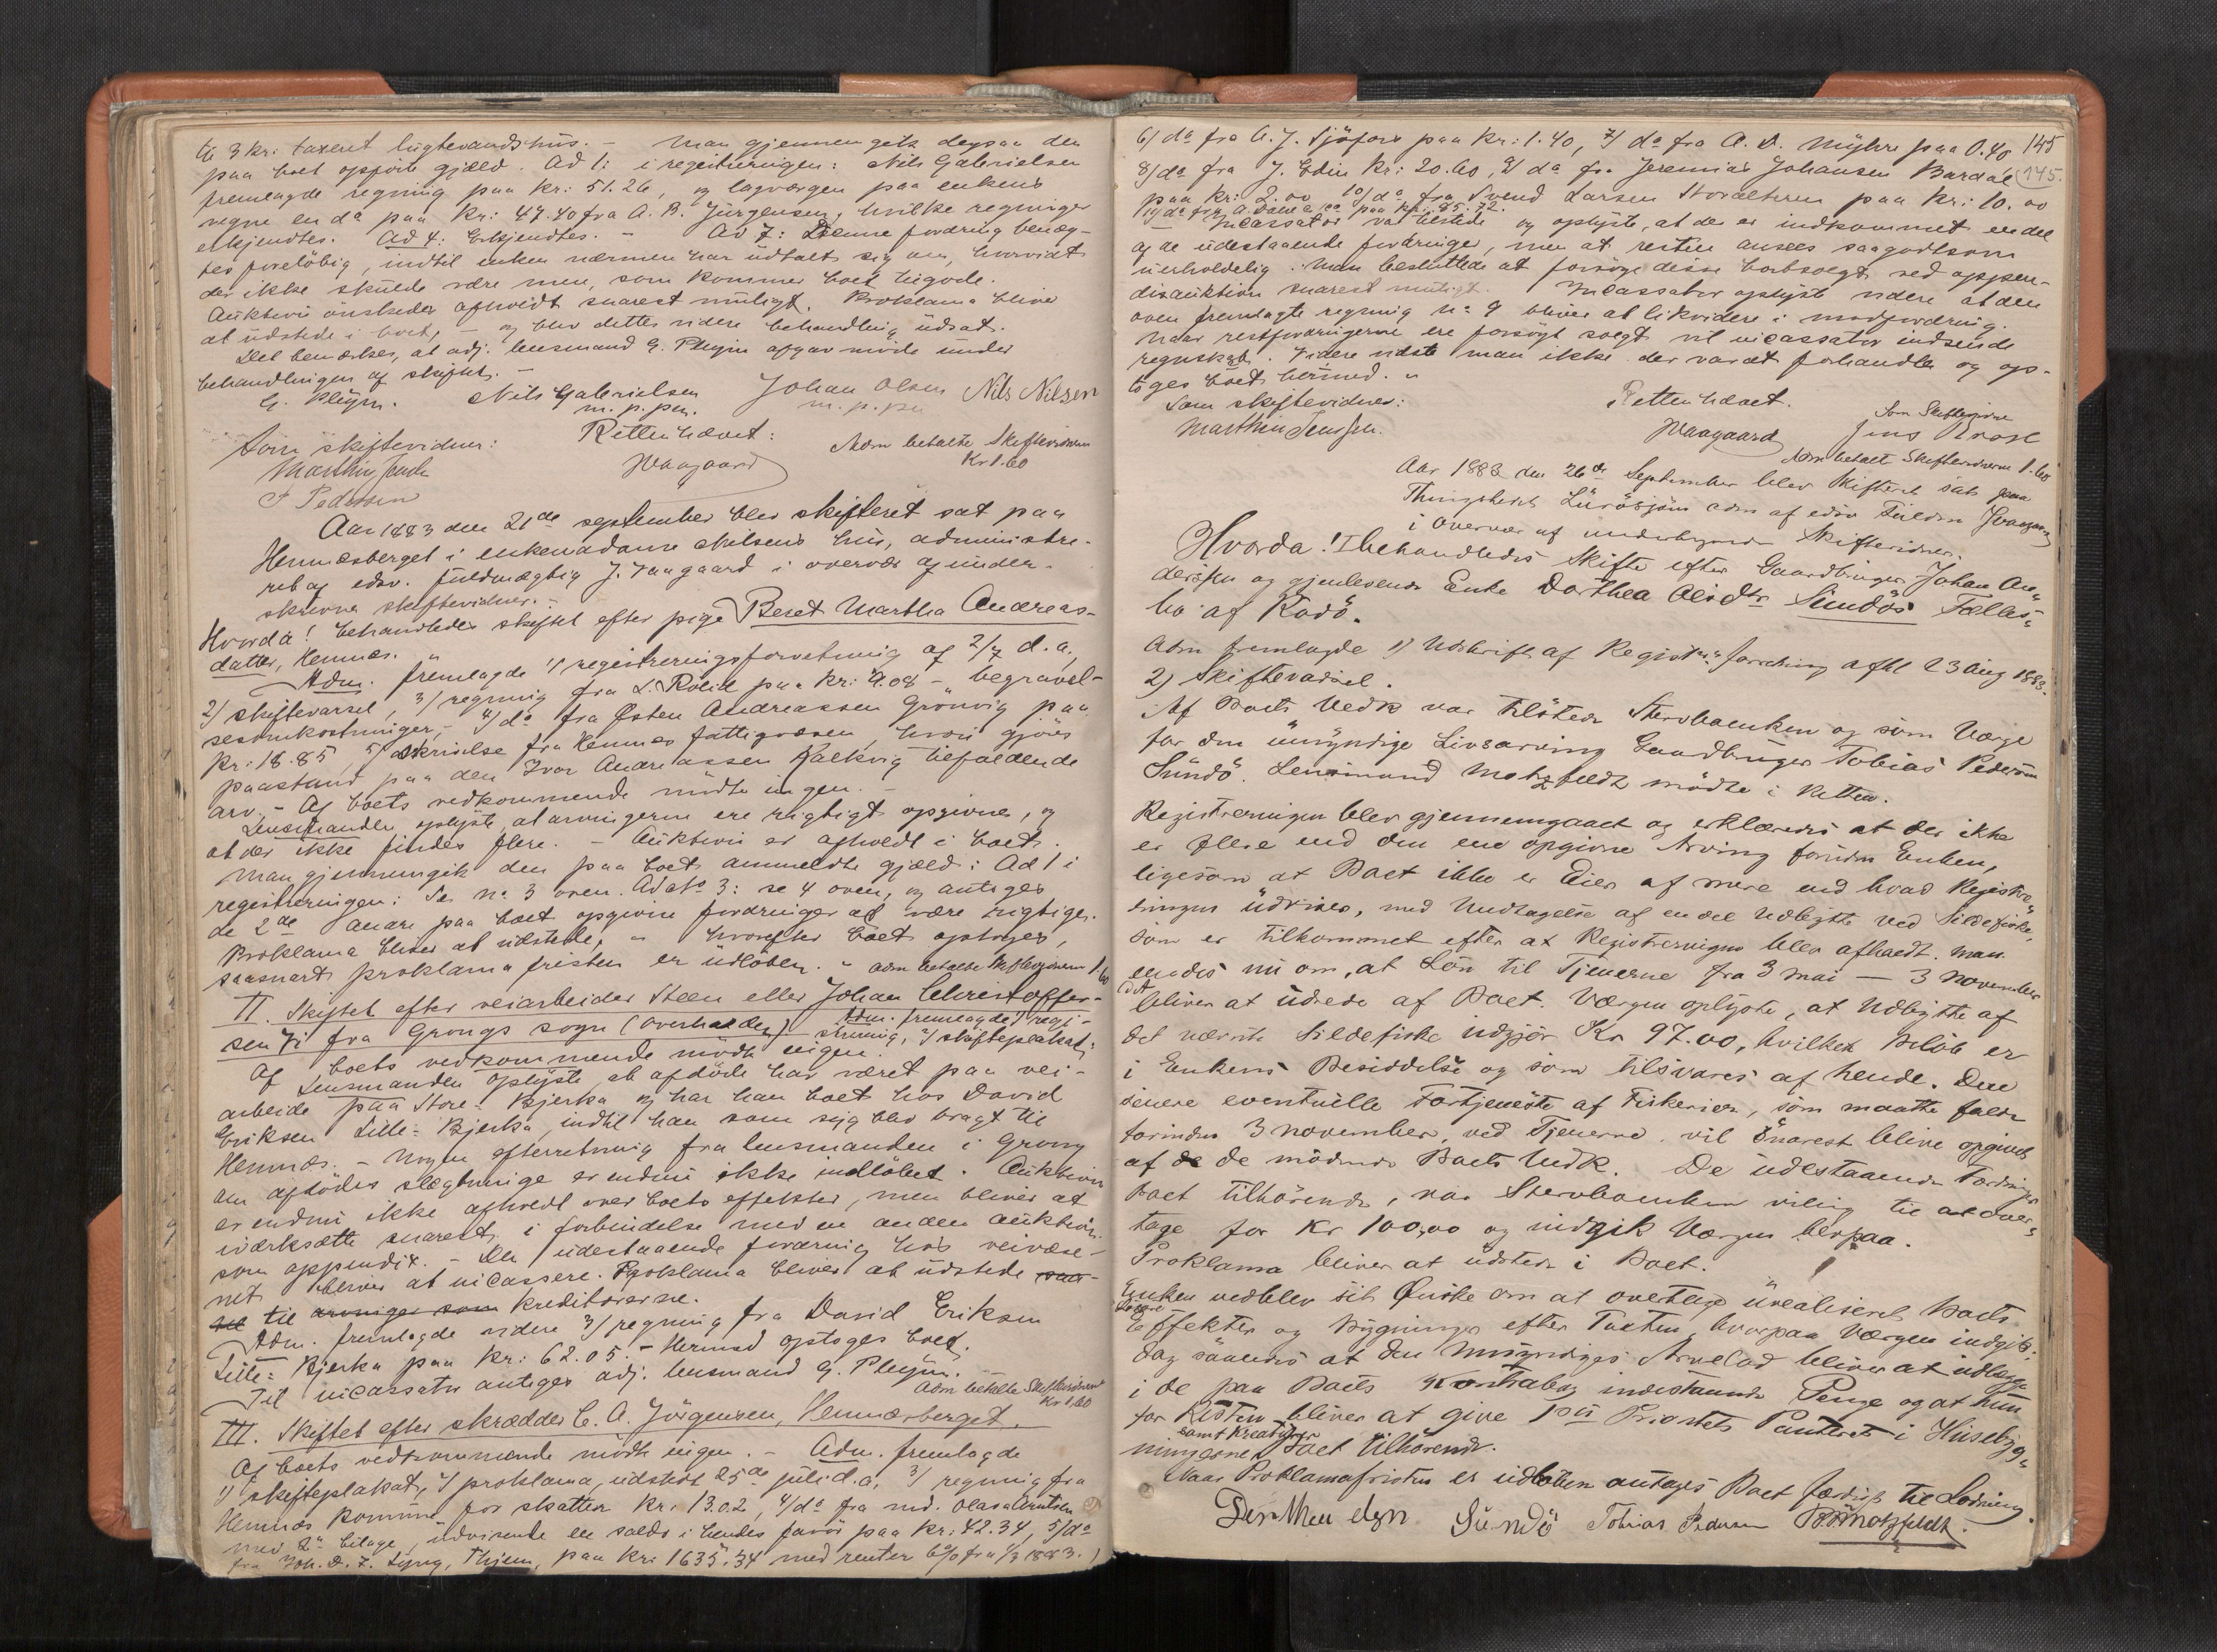 til 3 kr: taxeret lugtevandshus. - Man gjennemgik derpaa den
paa boet opførte gjæld. Ad 1: i registreringen: Nils Gabrielsen
fremlagde regning paa Kr: 51.26, og lagværgen paa enkens
vegne en do paa Kr: 47.40 fra A. B. Jürgensen, hvilke regninger
erkjendtes. Ad 4: Erkjendtes. - Ad 7: Denne fordring benæg-
tes foreløbig, indtil enken nærmere har udtalt sig om, hvorvidt
der ikke skulde være mere, som kommer boet tilgode.
Auktion ønskedes afholdt snarest muligt. Proklama bliver
at udstede i boet, - og blev dettes videre behandling udsat.
Det bemærkes, at adj. lensmand G. Pleym afgav møde under
behandlingen af skiftet. -
G. Pleym. Nils Gabrielsen Johan Olsen Nils Nilsen
m. p. pen. m. p. pn
Som skiftevidner: Retten hævet: Adm betalte Skiftevidnerne
Marthin Jensen Waagaard Kr 1.60
P Pedersen
Aar 1883 den 21de september blev skifteret sat paa
Hemnæsberget i enkemadame Nelsens hus, administre-
ret af edsv. fuldmægtig J. Vaagaard i overvær af under-
skrevne skiftevidner. -
Hvorda! behandledes skiftet efter pige Beret Martha Andreas-
datter, Hemnæs. "
Adm. fremlagde 1/ registreringsforretning af 2/7 d. a.,
2/ skiftevarsel, 3/ regning fra L. Rolid paa Kr: 9.08 - begravel-
sesomkostninger, - 4/ do fra Østen Andreassen Grønvig paa
Kr: 18.85, 5/ skrivelse fra Hemnes fattigvæsen, hvori gjøres
paastand paa den Ivar Andreassen Kalkvig tilfaldende
arv. - Af boets vedkommende mødte ingen. -
Lensmanden oplyste, at arvingerne ere rigtigt opgivne, og
at der ikke findes flere. - Auktion er afholdt i boet.
Man gjennemgik den paa boet anmeldte gjæld: Ad 1 i
registreringen: Se no 3 oven. Ad No 3: se 4 oven, og antages
de 2de andre paa boet opgivne fordringer at være rigtige.
Proklama bliver at udstede, " hvorefter boet optages,
saasnart proklama fristen er udløben. " Adm betalte Skiftevidnerne 1.60
II. Skiftet efter veiarbeider Steen eller Johan Christoffer-
sen ? fra Grongs sogn (Overhalden) - Adm. fremlagde 1/ regi-
strering, 2/ skifteplakat;
Af boets vedkommende mødte ingen.
Lensmanden oplyste at afdøde har været paa vei-
arbeide paa Store-Bjerka og har han boet hos David
Eriksen Lille-Bjerka, indtil han som syg blev bragt til
Hemnæs. - Nogen efterretning fra lensmanden i Grong
om afdødes slægtninge er endnu ikke indløbet. Auktion
er endnu ikke afholdt over boets effekter, men bliver at
iværksætte snarest i forbindelse med en anden auktion
som appendix. - Den udestaaende fordring hos veivæse-
net bliver at incassere. Proklama bliver at udstede saa-
vel til arvinger som kreditorerne.
Adm. fremlagde videre 3/ regning fra David Eriksen
Lille-Bjerka paa Kr: 62.05. - Hermed optoges boet.
Til incassator antoges adj. lensmand G. Pleym.
Adm betalte Skiftevidnerne
Kr 1.60
III. Skiftet efter skrædder C. A. Jörgensen, Hemnæsberget.
Af boets vedkommende mødte ingen. - Adm. fremlagde
1/ skifteplakat, 2/ proklama, udstedt 25de juli d.a. 3/ regning fra
Hemnæs kommune for skatter Kr. 13.02, 4/ do fra md. Olava Arntsen
med 2 bilage, udvisende en saldo i hendes favør paa Kr. 42.34, 5/ do
fra Joh. D. F. Lyng, Thjem, paa Kr: 1635.34 med renter 6% fra 1/3 1883.
6/ do fra A. J. Sjöfors paa Kr: 1.40, 7/ do fra A. D. Myhre paa 0.40 145
8/ do fra J. Edin Kr: 20.60, 9/ do fra Jeremias Johansen Bardal 145.
paa Kr: 2.00 10/ do fra Svend Larsen Storalteren paa Kr: 10.00
11/ do fra A. Dahl & Co paa Kr: 85.72.
Incassator var tilstede og oplyste, at der er indkommet endel
af de udestaaende fordringer, men at resten ansees saagodtsom
uerholdelig. Man besluttede at forsøge disse bortsolgt ved appen-
disauktion snarest muligt. Incassator oplyste videre at den
oven fremlagte regning no 9 bliver at likvidere i modfordring.
Naar restfordringerne ere forsøgt solgt vil incassator indsende
regnskab. Videre vidste man ikke der var at forhandle og op-
toges boet hermed. "
Som skiftevidner: Retten hævet. Som Skiftevidne
Marthin Jenssen. Waagaard Jens Prost
Adm betalt Skiftevidnerne 1.60
Aar 1883 den 26de September blev Skifteret sat paa
Thingstedet Luröosjöen adm af edsv Fuldm Jvaagaard
i Overvær af undertegnede Skiftevidner.
Hvorda! Ibehandledes Skifte efter Gaardbruger Johan An-
dersen og gjenlevende Enke Dorthea Olsdtr Sundös Fælles-
bo af Rodö.
Adm fremlagde 1) Udskrift af Registr.s forretning afhl 23 Aug 1883.
2) Skiftevarsel.
Af Boets Vedk var tilstede Stervboenken og som Værge
for den umyndige Livsarving Gaardbruger Tobias Pedersen
Sundö. Lensmand Motzfeldt mødte i Retten.
Registreringen blev gjennemgaaet og erklæredes at der ikke
er flere end den ene opgivne Arving foruden Enken,
ligesom at Boet ikke er Eier af mere end hvad Registre-
ringen udviser, med Undtagelse af en del Udbytte ved Sildefiske,
som er tilkommet efter at Registreringen blev afholdt. Man
enedes nu om, at Lön til Tjenerne fra 3 Mai - 3 November
dt bliver at udrede af Boet. Værgen oplyste, at Udbytte af
det nævnte Sildefiske udgjør Kr 97.00, hvilket Beløb er
i Enkens Besiddelse og som tilsvares af hende. Den
senere eventuelle Fortjeneste af Fiskerier, som maatte falde
forinden 3 November, ved Tjenerne, vil snarest blive opgivet
af de de mødende Boets Vedk. De udestaaende Fordringer
Boet tilhörende, var Stervboenken villig til at over-
tage for Kr 100,00 og indgik Værgen herpaa.
Proklama bliver at udstede i Boet.
Enken vedblev sit Ønske om at overtage urealiseret Boets
Løsøre
Effekter og Bygninger efter Taxten, hvorpaa Værgen indgik,
dog saaledes at den Umyndiges Arvelod bliver at udlægge
i de paa Boets Kontrabog indestaaende Penge og at hun
for Resten bliver at give 1ste Prioritets Panteret i Husebyg-
samt Kreaturer
ningerne Boet tilhørende.
Naar Proklamafristen er udløben antages Boet færdigt til Lodning.
Dorthea Olsen Sundö Tobias Pedersen Motzfeldt.